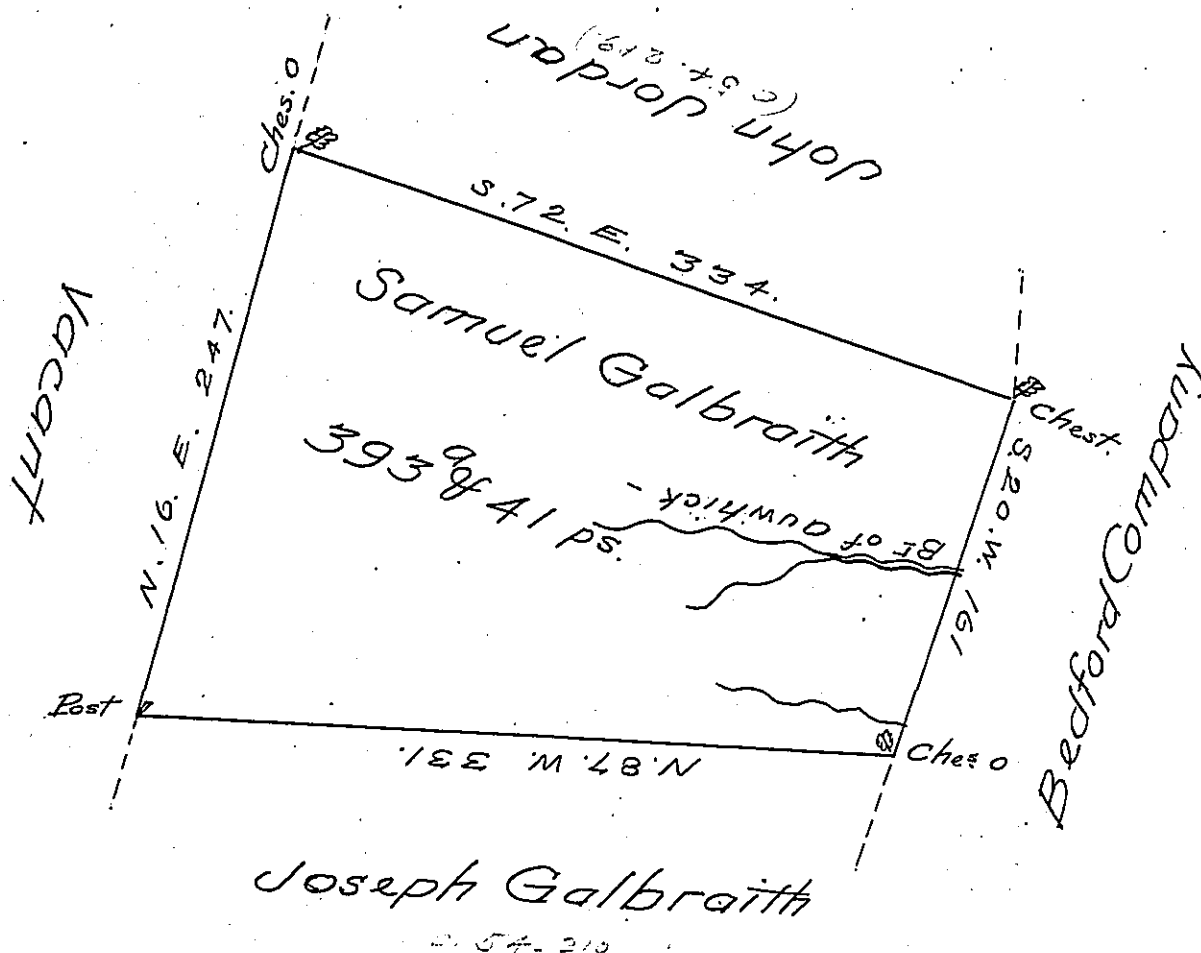 John Jordan
(C 54. 219)
Ches. O
S. 72. E. 334.
Vacant
N. 16. E. 247.
Samuel Galbraith
393 a & 41 ps.
Br of auwhick -
Chest.
S. 20. W. 161
Bedford Company
Post
N. 87. W. 331.
Ches O
Joseph Galbraith
54-210